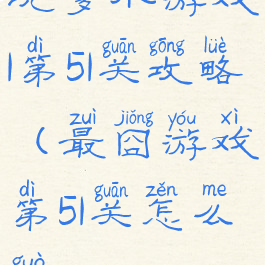 dì guān gōng lüè
|第51关攻略
zuì jiǒng yóu xì
(最囧游戏
dì guān zěn me
第51关怎么
guò